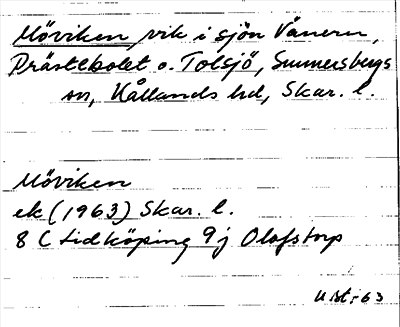 Möviken, vik i sjön Vänern,
Prästebolet o. Tolsjö, Sunnersbergs
sn, Kållands hd, Skar. l.
Möviken
ek (1963) Skar. l.
8 C Lidköping 9j Olofstorp
-63